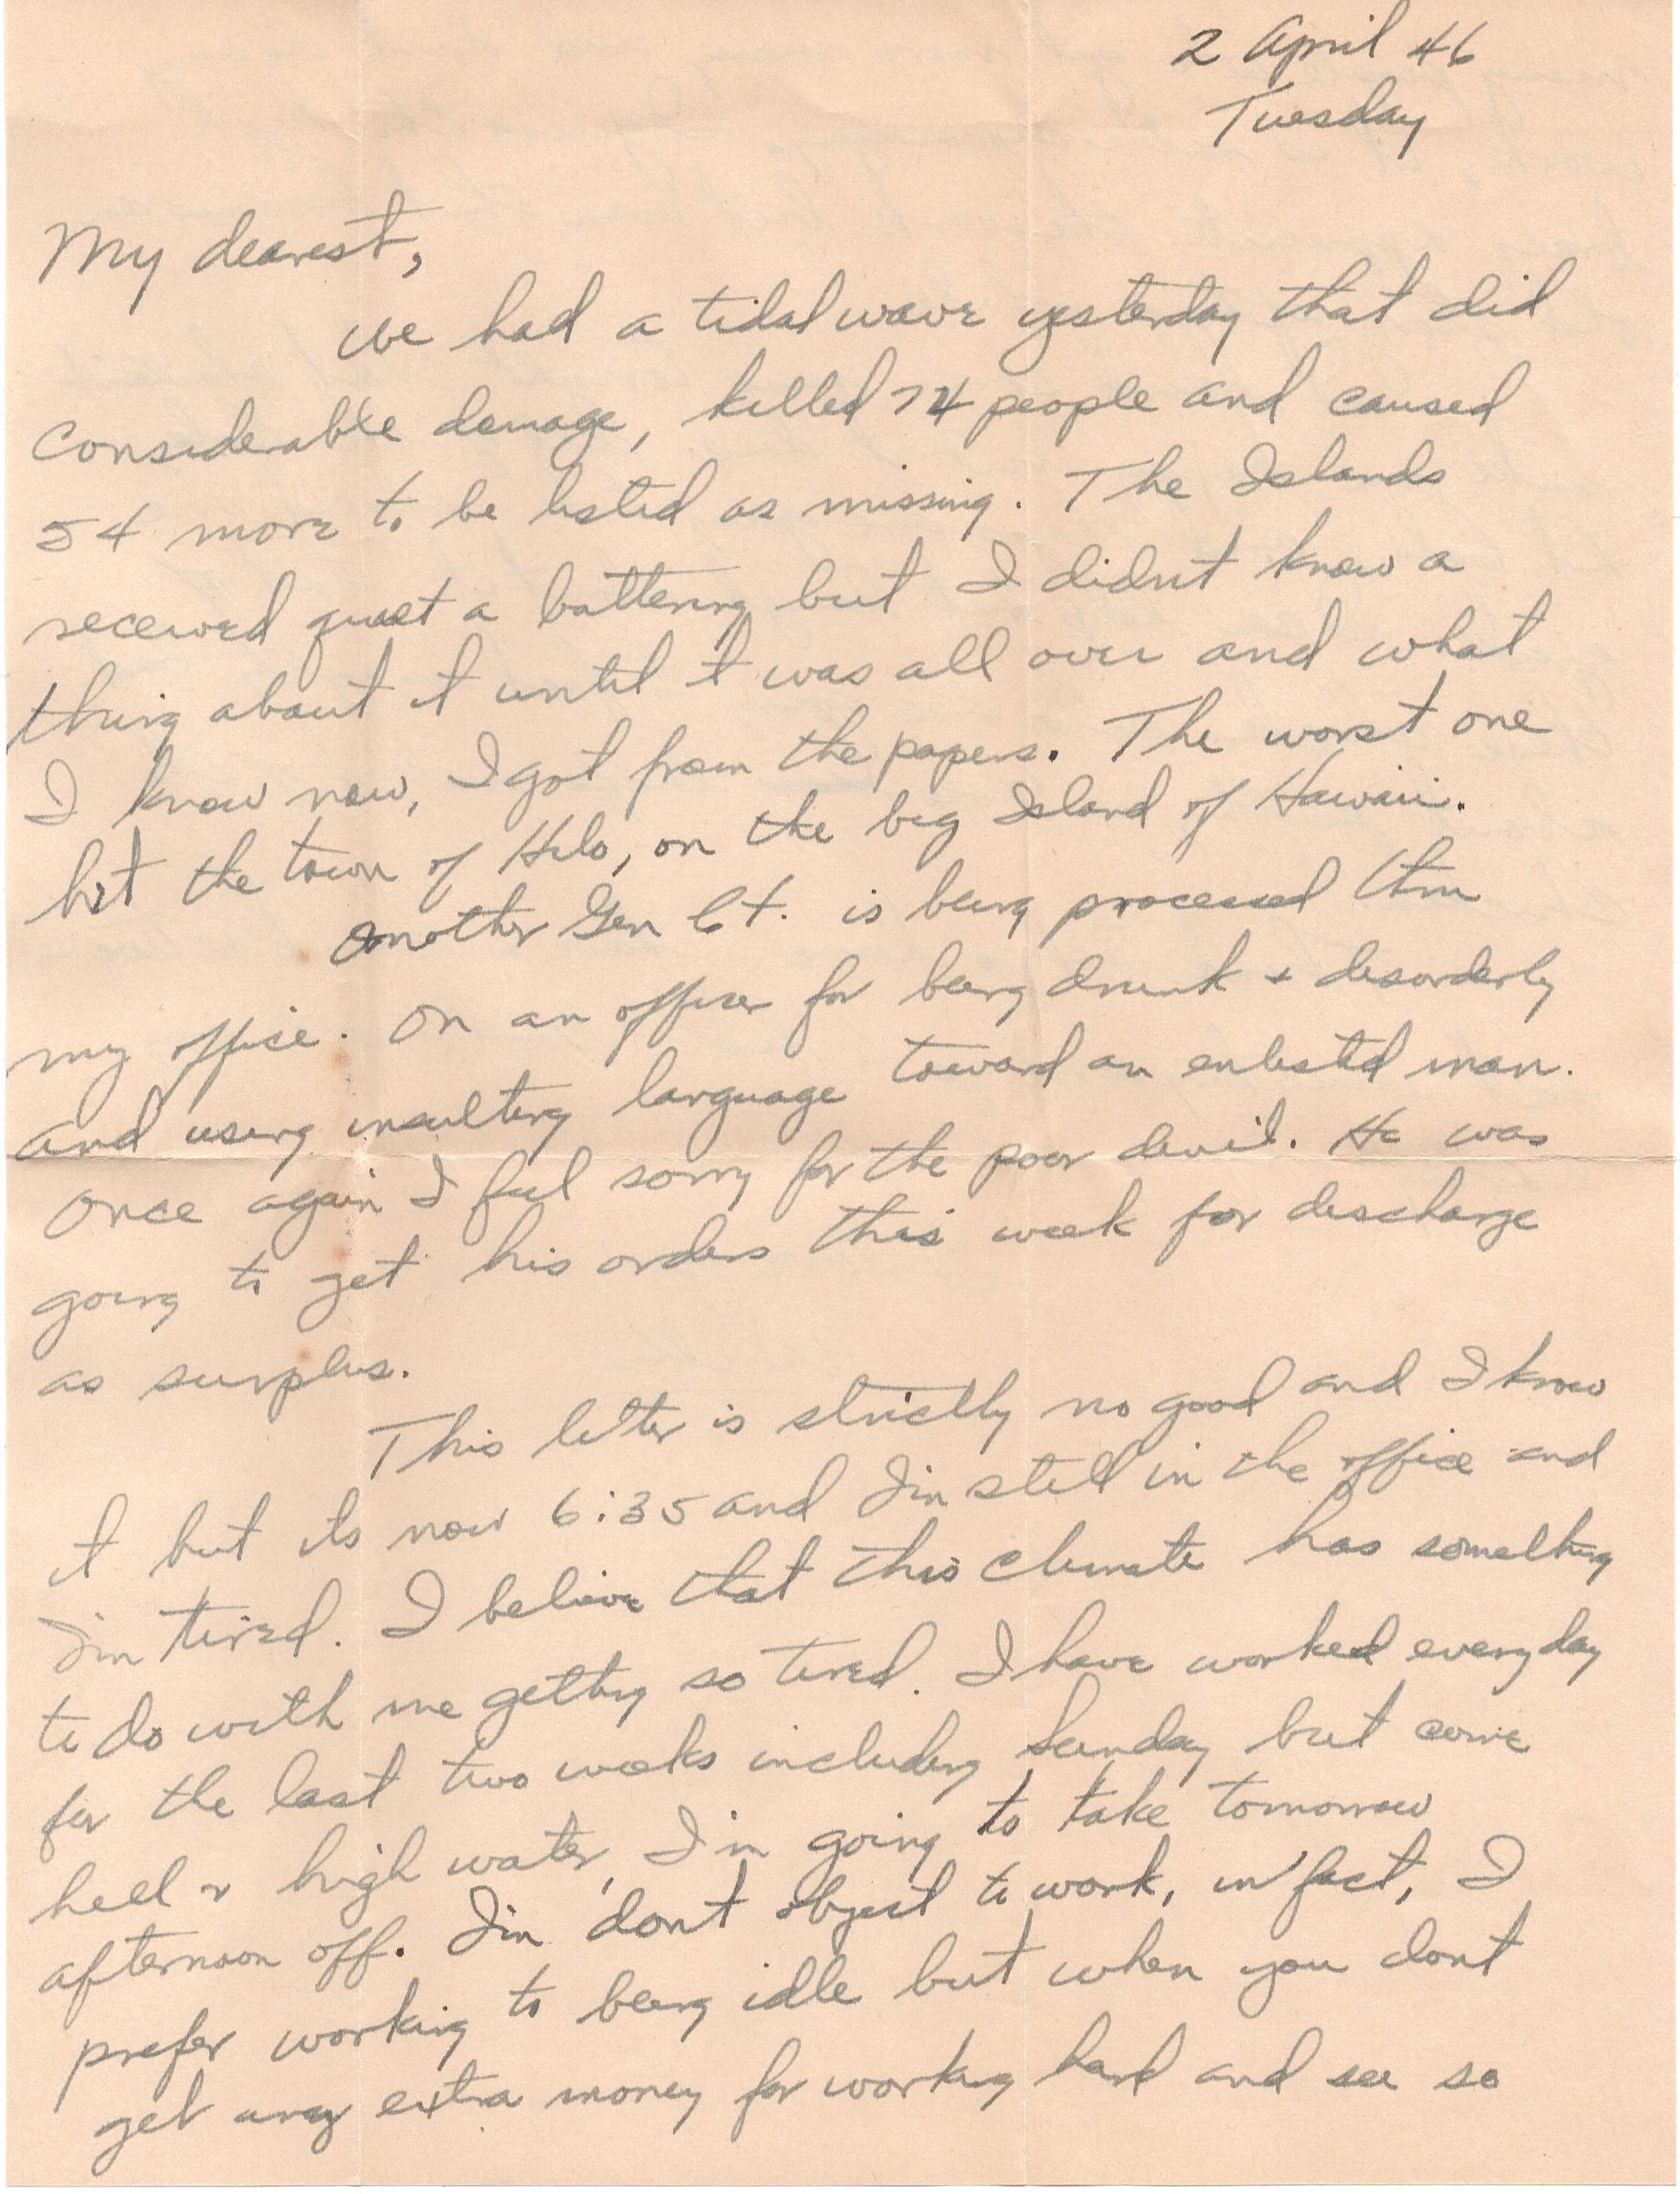 2 April 46
Tuesday
My dearest,
We had a tidal wave yesterday that did
considerable damage, killed 74 people and caused
54 more to be listed as missing. The Islands
received quiet a battering but I didnt know a
thing about it until it was all over and what
I know now, I got from the papers. The worst one
hit the town of Hilo, on the big Island of Hawaii.
Another Gen Ct. is being processed thru
my office. On an officer for being drunk + disorderly
and using insulting language toward an enlisted man.
Once again I feel sorry for the poor devil. He was
going to get his orders this week for discharge
as surplus.
This letter is strictly no good and I know
it but its now 6:35 and I'm still in the office and
I'm tired. I believe that this climate has something
to do with me getting so tired. I have worked everyday
for the last two weeks including Sunday but come
hell or high water, I'm going to take tomorrow
afternoon off. I'm dont object to work, in fact, I
prefer working to being idle but when you dont
get any extra money for working hard and see so